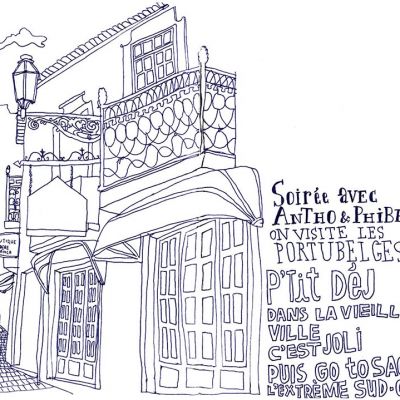 Soirée avec
ANTHO & PHIBE
ON VISITE LES
PORTUBELGES
P'tit DÉJ
DANS LA VIEILL
VILLE
C'EST JOLI
PUIS GO to SAG
L'EXTRÊME SUD-O